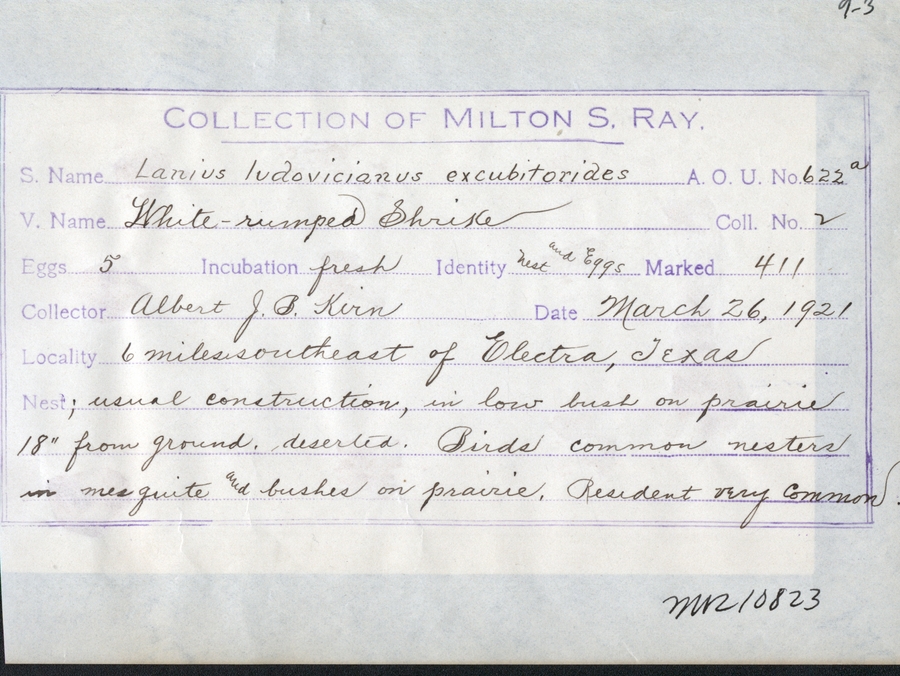 9-3
COLLECTION OF MILTON S. RAY.
S. Name Lanius ludovicianus excubitorides A. O. U. No. 622a
V. Name White-rumped Shrike Coll. No. 2
Eggs 5 Incubation fresh Identity Nest and Eggs Marked 411
Collector Albert J. B. Kirn Date March 26, 1921
Locality 6 miles southeast of Electra, Texas
Nest; usual construction, in low bush on prairie
18" from ground. deserted. Birds common nesters
in mesquite and bushes on prairie. Resident very common.
MR 10823